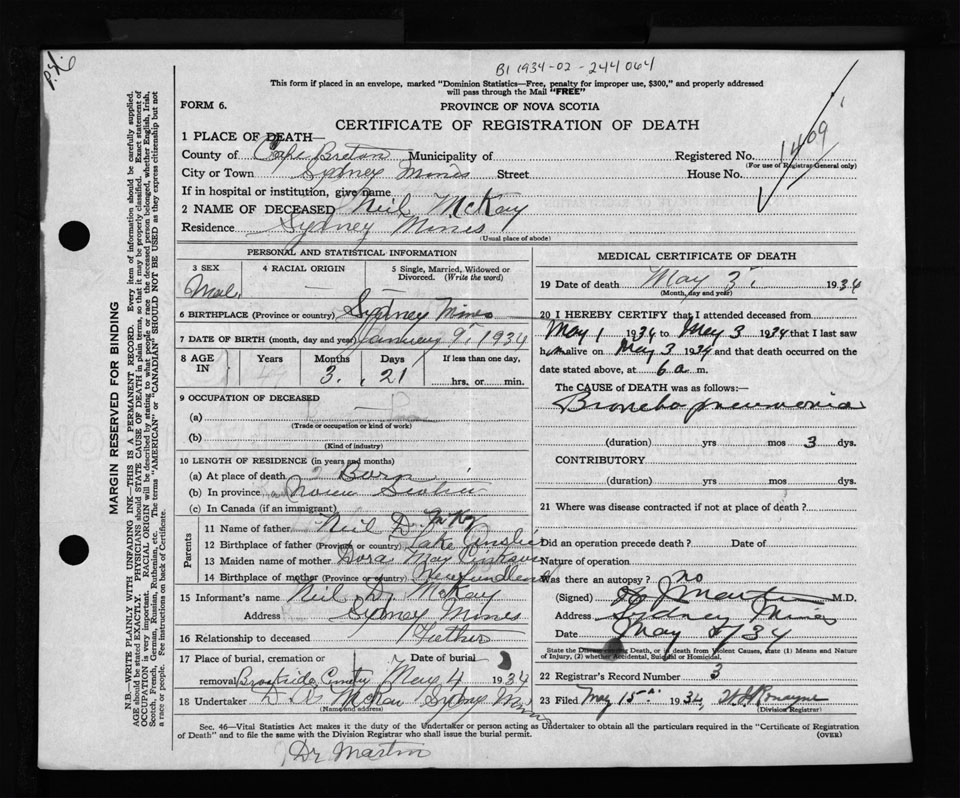 B1 1934-02-244064
This form if placed in an envelope, marked "Dominion Statistics—Free, penalty for improper use, $300," and properly addressed
will pass through the Mail "FREE"
FORM 6.
PROVINCE OF NOVA SCOTIA
CERTIFICATE OF REGISTRATION OF DEATH
1409
MARGIN RESERVED FOR BINDING
N.B.—WRITE PLAINLY WITH UNFADING INK—THIS IS A PERMANENT RECORD. Every item of information should be carefully supplied.
AGE should be stated EXACTLY. PHYSICIANS should STATE CAUSE OF DEATH in plain terms, so that it may be properly classified. Exact statement of
OCCUPATION is very important. RACIAL ORIGIN will be described by stating to what people or race the deceased person belonged, whether English, Irish,
Scotch, French, German, Russian, Ruthenian, etc. The terms "AMERICAN" or "CANADIAN" SHOULD NOT BE USED as they express citizenship but not
a race or people. See instructions on back of Certificate.
1 PLACE OF DEATH—
County of Cape Breton Municipality of Registered No.
(For use of Registrar General only)
City or Town Sydney Mines Street House No.
If in hospital or institution, give name
2 NAME OF DECEASED Neil McKay
Residence Sydney Mines
(Usual place of abode)
PERSONAL AND STATISTICAL INFORMATION
3 SEX 4 RACIAL ORIGIN 5 Single, Married, Widowed or
Divorced. (Write the word)
Male — —
6 BIRTHPLACE (Province or country) Sydney Mines
7 DATE OF BIRTH (month, day and year) January 9, 1934
8 AGE IN Years Months Days If less than one day,
3 21 hrs. or min.
9 OCCUPATION OF DECEASED
(a)
(Trade or occupation or kind of work)
(b)
(Kind of industry)
10 LENGTH OF RESIDENCE (in years and months)
(a) At place of death Born
(b) In province Nova Scotia
(c) In Canada (if an immigrant)
Parents
11 Name of father Neil D. McKay
12 Birthplace of father (Province or country) Lake Ainslie
13 Maiden name of mother Dora May
14 Birthplace of mother (Province or country) Newfoundland
15 Informant's name Neil D. McKay
Address Sydney Mines
16 Relationship to deceased Father
17 Place of burial, cremation or Date of burial
removal Brookside Cemetry May 4 1934
18 Undertaker Sydney Mines
(Name and address)
MEDICAL CERTIFICATE OF DEATH
19 Date of death May 3, 1934
(Month, day and year)
20 I HEREBY CERTIFY that I attended deceased from
May 1 1934 to May 3 1934 that I last saw
him alive on May 3 1934 and that death occurred on the
date stated above, at 6 a. m.
The CAUSE OF DEATH was as follows:—
Broncho pneumonia
(duration) yrs mos 3 dys.
CONTRIBUTORY
(duration) yrs mos dys.
21 Where was disease contracted if not at place of death?
Did an operation precede death? Date of
Nature of operation
Was there an autopsy? no
(Signed) Martin M.D.
Address Sydney Mines
Date May 34
State the Disease causing Death, or in death from Violent Causes, state (1) Means and Nature
of Injury, (2) whether Accidental, Suicidal or Homicidal.
22 Registrar's Record Number 3
23 Filed May 15 1934
(Division Registrar)
Sec. 46—Vital Statistics Act makes it the duty of the Undertaker or person acting as Undertaker to obtain all the particulars required in the "Certificate of Registration
of Death" and to file the same with the Division Registrar who shall issue the burial permit.
(OVER)
Dr Martin